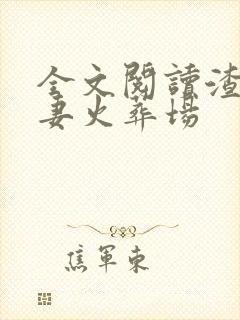 全文閱讀渣
妻火葬場
焦軍東